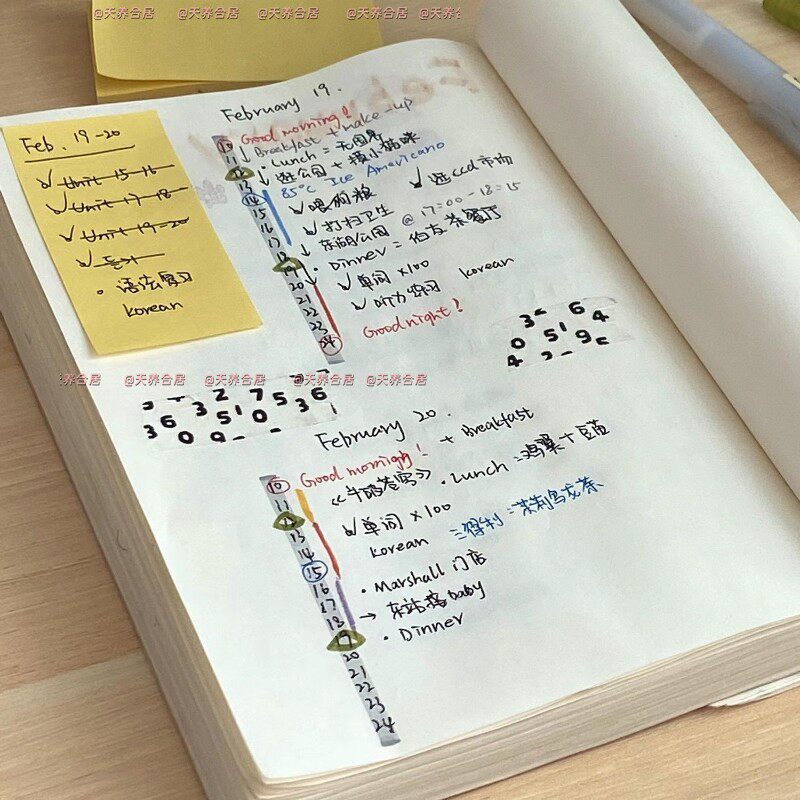 @天养合居 @天养合居 @天养合居 @天养合居
Feb. 19-20
Unit 15-16
Unit 17-18
Unit 19-20
듣기
语法复习
korean
February 19.
10 Good morning!
11 Breakfast + make-up
Lunch =
13 逛公园 + 摸小猫咪
14 85°C Ice Americano
15 喂狗粮 逛ccd市场
16 打扫卫生
17 东湖公园 @ 17:00-18:15
18 Dinner = 伯友茶餐厅
19
20 单词 x100
21 听力练习 korean
22
23 Good night!
24
3 6
0 5 1 4
4 9 5
天养合居 @天养合居 @天养合居 @天养合居
3 2 7 5 6
3 6 5 1 0 3
0 9
February 20.
10 Good morning! + Breakfast
11 《牛破苍穹》 Lunch = 鸡翼 + 豆苗
13 单词 x100
14 korean 三得利 = 茉莉乌龙茶
15
16 Marshall 门店
17 → 东站接baby
18 Dinner
19
20
21
22
23
24